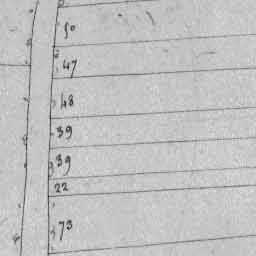 50
47
48
39
39
22
73